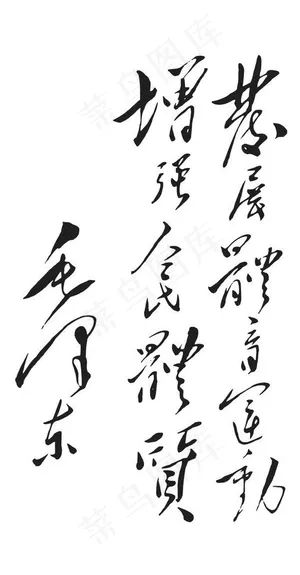 發展體育運動
增强人民體質
毛澤东
菜鸟图库